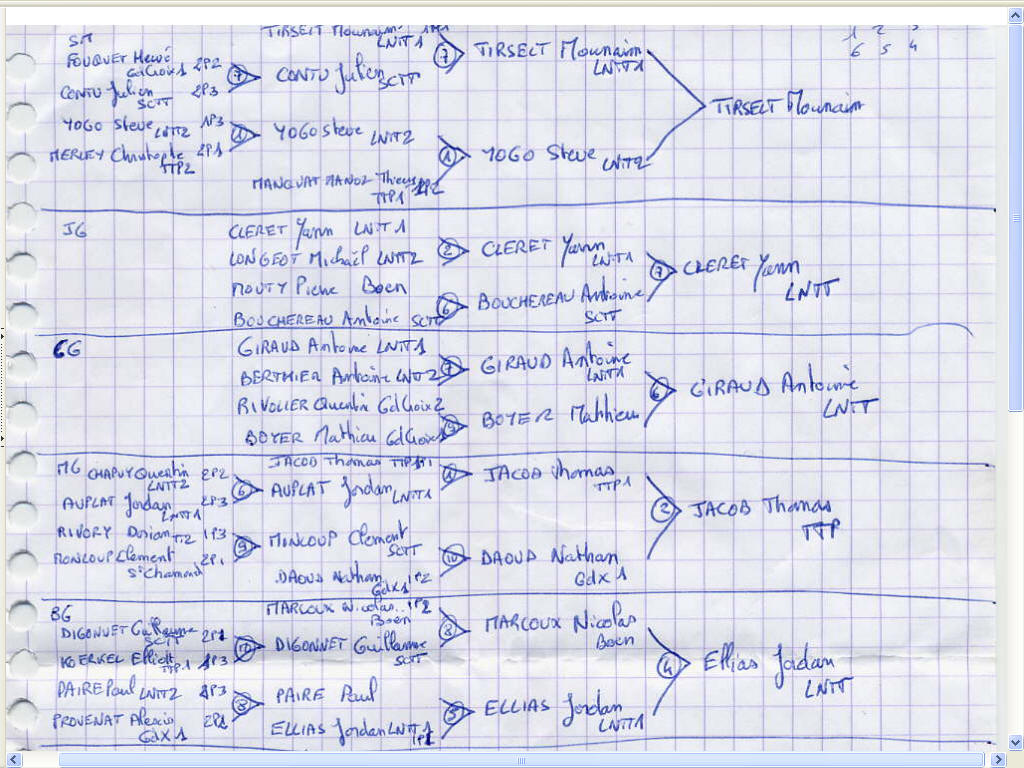 1 2 3
6 5 4
SM
FOUQUET Hervé 2P2
GdCroix1
CONTU Julien 2P3
SCTT
7
CONTU Julien
SCTT
YOGO Steve LNTT2 1P3
MERLEY Christophe 2P1
TTP2
1
YOGO Steve LNTT2
TIRSELT Mounaim
LNTT1
MANQUAT
TTP1
7
TIRSELT Mounaim
LNTT1
1
YOGO Steve LNTT2
TIRSELT Mounaim
JG
CLERET Yann LNTT1
LONGEOT Michaël LNTT2
MOUTY Pierre Boen
BOUCHEREAU Antoine SCTT
2
CLERET Yann
LNTT1
6
BOUCHEREAU Antoine
SCTT
7
CLERET Yann
LNTT
CG
GIRAUD Antoine LNTT1
BERTHIER Antoine LNTT2
RIVOLIER Quentin GdCroix2
BOYER Mathieu GdCroix1
7
GIRAUD Antoine
LNTT1
9
BOYER Mathieu
6
GIRAUD Antoine
LNTT
MG CHAPUY Quentin 2P2
LNTT2
AUPLAT Jordan 2P3
LNTT1
6
JACOB Thomas TTP1
AUPLAT Jordan LNTT1
RIVORY Dorian 1P3
MONCOUP Clement 2P1
St Chamond
9
MONCOUP Clement
SCTT
DAOUD Nathan 1P2
GdX1
JACOB Thomas
TTP1
10
DAOUD Nathan
GdX1
2
JACOB Thomas
TTP
BG
DIGONNET Guillaume 2P1
SCTT
KOERKEL Elliott 1P3
TTP1
10
MARCOUX Nicolas 1P2
Boen
DIGONNET Guillaume
SCTT
PAIRE Paul LNTT2 2P3
PROVENAT Alexis 2P1
GdX1
8
PAIRE Paul
ELLIAS Jordan LNTT1
1P1
3
MARCOUX Nicolas
Boen
5
ELLIAS Jordan
LNTT1
4
Ellias Jordan
LNTT